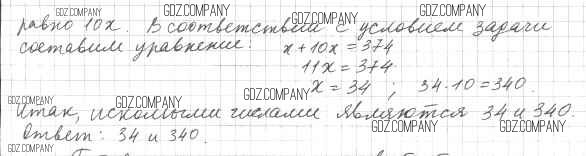 GDZ.COMPANY GDZ.COMPANY GDZ.COMPANY GDZ.COMPANY
равно 10x. В соответствии с условием задачи
составим уравнение: x + 10x = 374
11x = 374
x = 34 ; 34·10 = 340.
GDZ.COMPANY GDZ.COMPANY GDZ.COMPANY GDZ.COMPANY
Итак, искомыми числами являются 34 и 340.
GDZ.COMPANY GDZ.COMPANY
Ответ: 34 и 340.
GDZ.COMPANY